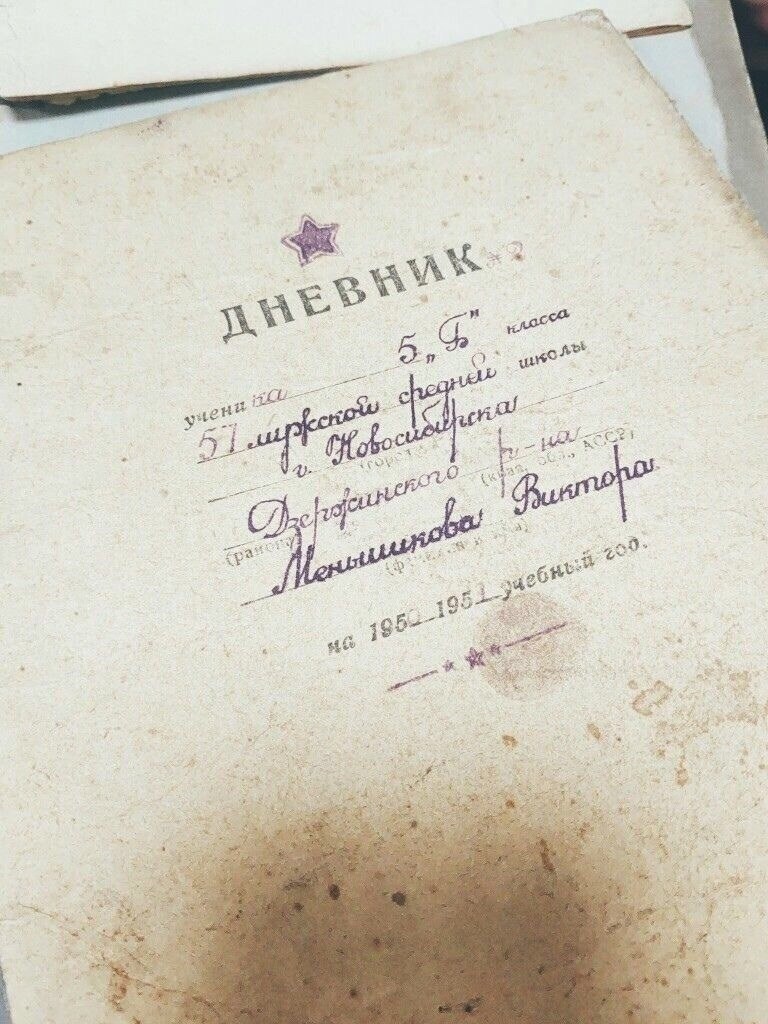 ДНЕВНИК № 2
ученика 5 „Б" класса
57 мужской средней школы
г. Новосибирска
(город)
(края, обл., АССР)
Дзержинского р-на
(района)
Меньшикова Виктора
(фамилия и имя)
на 1950 1951 учебный год.